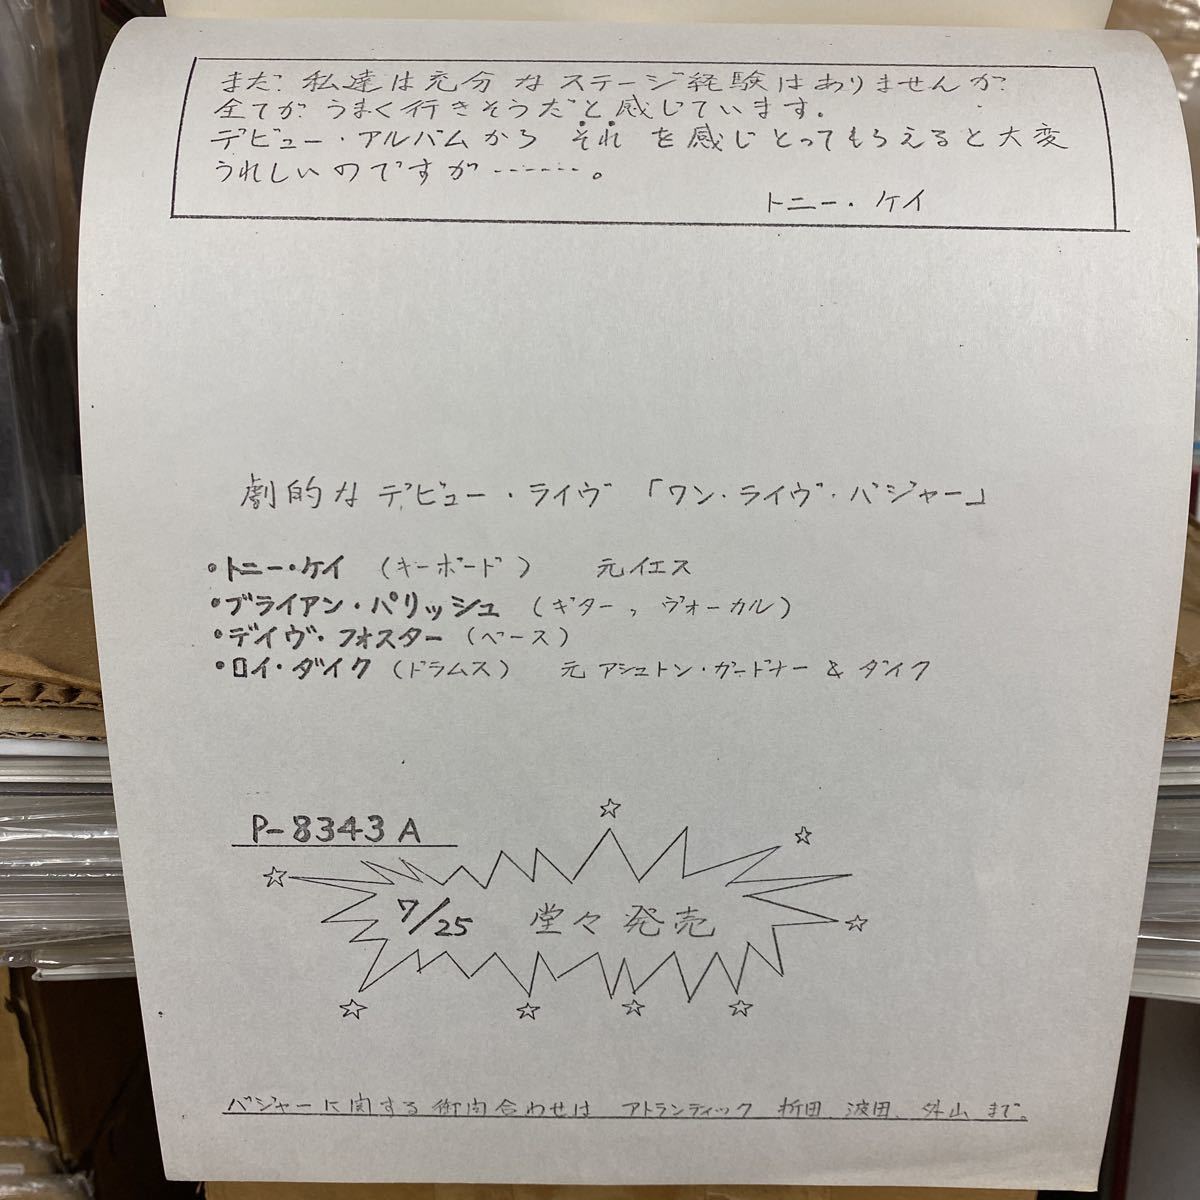 まだ 私達は充分なステージ経験はありませんが
全てが うまく行きそうだと感じています.
デビュー・アルバムから それ を感じとってもらえると大変
うれしいのですが……。
トニー・ケイ
劇的なデビュー・ライヴ「ワン・ライヴ・バジャー」
・トニー・ケイ (キーボード) 元イエス
・ブライアン・パリッシュ (ギター, ヴォーカル)
・デイヴ・フォスター (ベース)
・ロイ・ダイク (ドラムス) 元 アシュトン・ガードナー & ダイク
P-8343A
7/25 堂々発売
バジャーに関する御問合わせは アトランティック 折田、波田、外山 まで。